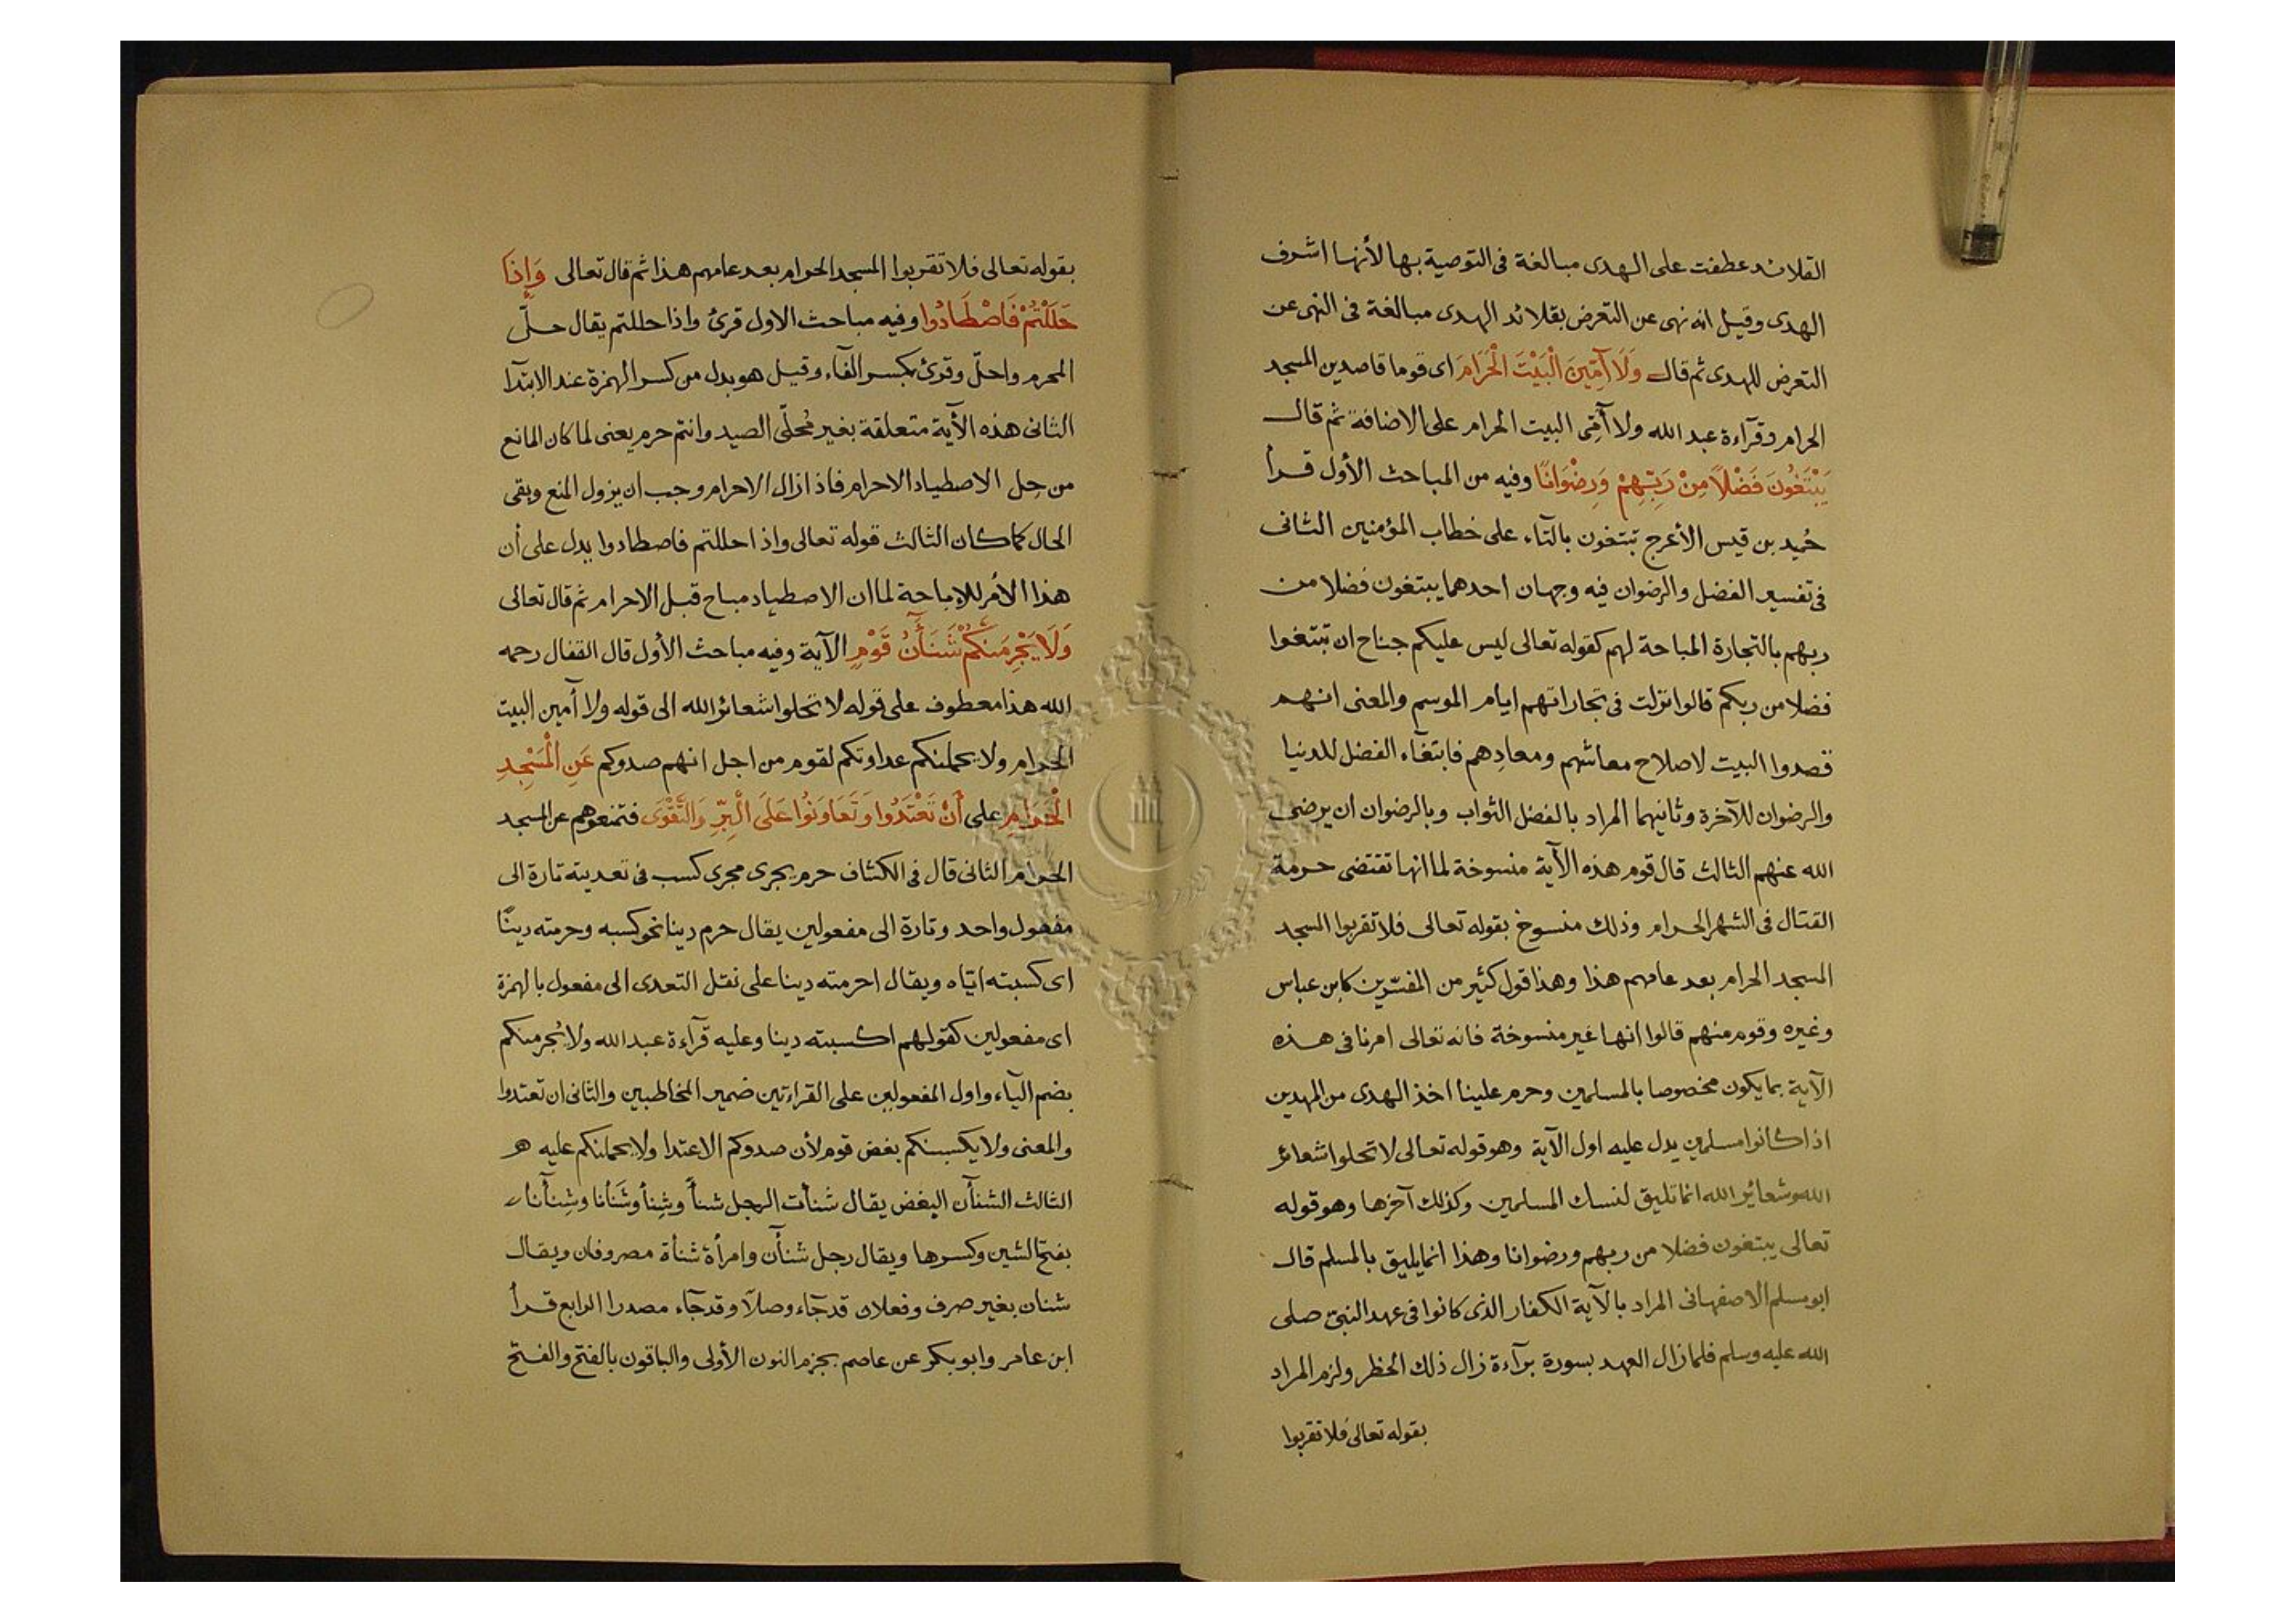 القلائد عطفت على الهدى مبالغة فى التوصية بها لأنها اشرف
الهدى وقيل انه نهى عن التعرض بقلائد الهدى مبالغة فى النهى عن
التعرض للهدى ثم قال وَلَا آمِّينَ الْبَيْتَ الْحَرَامَ اى قوما قاصدين المسجد
الحرام وقرآءة عبد الله ولا آمِّى البيت الحرام على الاضافة ثم قال
يَبْتَغُونَ فَضْلًا مِنْ رَبِّهِمْ وَرِضْوَانًا وفيه من المباحث الأول قرأ
حُميد بن قيس الأعرج تبتغون بالتآء على خطاب المؤمنين الثانى
فى تفسير الفضل والرضوان فيه وجهان احدهما يبتغون فضلا من
ربهم بالتجارة المباحة لهم كقوله تعالى ليس عليكم جناح ان تبتغوا
فضلا من ربكم قالوا نزلت فى تجاراتهم ايام الموسم والمعنى انهم
قصدوا البيت لاصلاح معاشهم ومعادِهم فابتغآء الفضل للدنيا
والرضوان للآخرة وثانيهما المراد بالفضل الثواب وبالرضوان ان يرضى
الله عنهم الثالث قال قوم هذه الآية منسوخة لما انها تقتضى حرمة
القتال فى الشهر الحرام وذلك منسوخ بقوله تعالى فلا تقربوا المسجد
المسجد الحرام بعد عامهم هذا وهذا قول كثير من المفسّرين كابن عباس
وغيره وقوم منهم قالوا انها غير منسوخة فانه تعالى امرنا فى هذه
الآية بما يكون مخصوصا بالمسلمين وحرم علينا اخذ الهدى من المهدين
اذا كانوا مسلمين يدل عليه اول الآية وهو قوله تعالى لا تحلوا شعائر
الله وشعائر الله انما تليق لنسك المسلمين وكذلك آخرها وهو قوله
تعالى يبتغون فضلا من ربهم ورضوانا وهذا انما يليق بالمسلم قال
ابو مسلم الاصفهانى المراد بالآية الكفار الذى كانوا فى عهد النبىّ صلى
الله عليه وسلم فلما زال العهد بسورة برآءة زال ذلك الحظر ولزم المراد
بقوله تعالى فلا تقربوا
بقوله تعالى فلا تقربوا المسجد الحرام بعد عامهم هذا ثم قال تعالى وَإِذَا
حَلَلْتُمْ فَاصْطَادُوا وفيه مباحث الاول قرئ واذا حللتم يقال حلّ
المحرم واحلّ وقرئ بكسر الفآء وقيل هو بدل من كسر الهمزة عند الابتدآ
الثانى هذه الآية متعلقة بغير مُحلّى الصيد وانتم حرم يعنى لما كان المانع
من حِل الاصطياد الاحرام فاذا زال الاحرام وجب ان يزول المنع وبقى
الحال كما كان الثالث قوله تعالى واذا حللتم فاصطادوا يدل على أن
هذا الأمر للإباحة لما ان الاصطياد مباح قبل الاحرام ثم قال تعالى
وَلَا يَجْرِمَنَّكُمْ شَنَآنُ قَوْمٍ الآية وفيه مباحث الأول قال القفال رحمه
الله هذا معطوف على قوله لا تحلوا شعائر الله الى قوله ولا آمين البيت
الحرام ولا يحملنكم عداوتكم لقوم من اجل انهم صدوكم عَنِ الْمَسْجِدِ
الْحَرَامِ على أَنْ تَعْتَدُوا وَتَعَاوَنُوا عَلَى الْبِرِّ وَالتَّقْوَى فتمنعوهم عن المسجد
الحرام الثانى قال فى الكشاف حرم يجرى مجرى كسب فى تعديته تارة الى
مفعول واحد وتارة الى مفعولين يقال حرم دينا نحو كسبه وحرمته دينًا
اى كسبته ايّاه ويقال احرمته دينا على نقل التعدى الى مفعول بالهمزة
اى مفعولين كقولهم اكسبته دينا وعليه قرآءة عبد الله ولا يُجرمنكم
بضم اليآء واول المفعولين على القراءتين ضمير المخاطبين والثانى ان تعتدوا
والمعنى ولا يكسبنكم بغض قوم لأن صدوكم الاعتدا ولا يحملنكم عليه هو
الثالث الشنآن البغض يقال شنأت الرجل شنأً وشِنأ وشَنأنا وشِنأنا
بفتح الشين وكسرها ويقال رجل شنآن وامرأة شنأة مصروفان ويقال
شنان بغير صرف وفعلان قد جآء وصلاً وقد جآء مصدرا الرابع قرأ
ابن عامر وابو بكر عن عاصم بجزم النون الأولى والباقون بالفتح والفتح